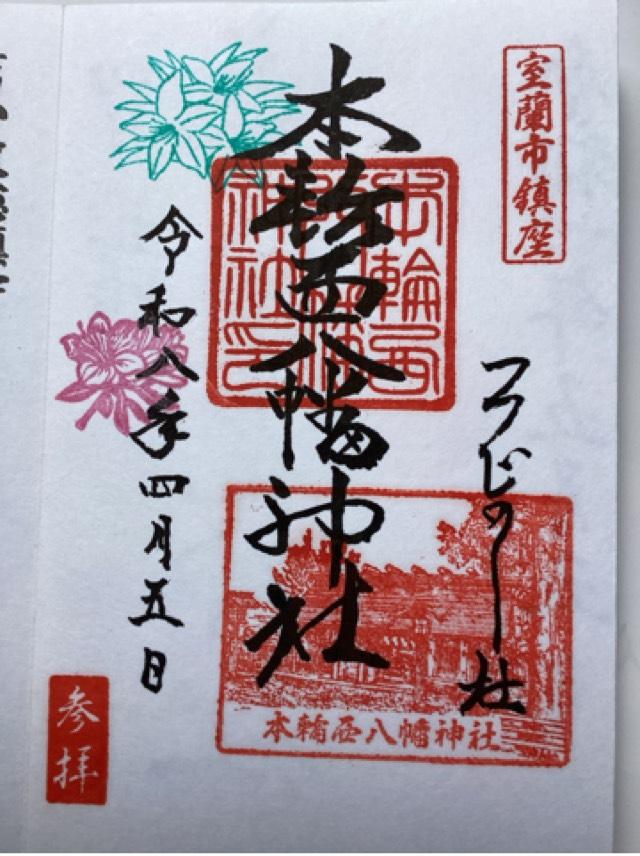 室蘭市鎮座
つつじの社
本輪西八幡神社
本輪西八幡神社印
令和八年四月五日
本輪西八幡神社
参拝